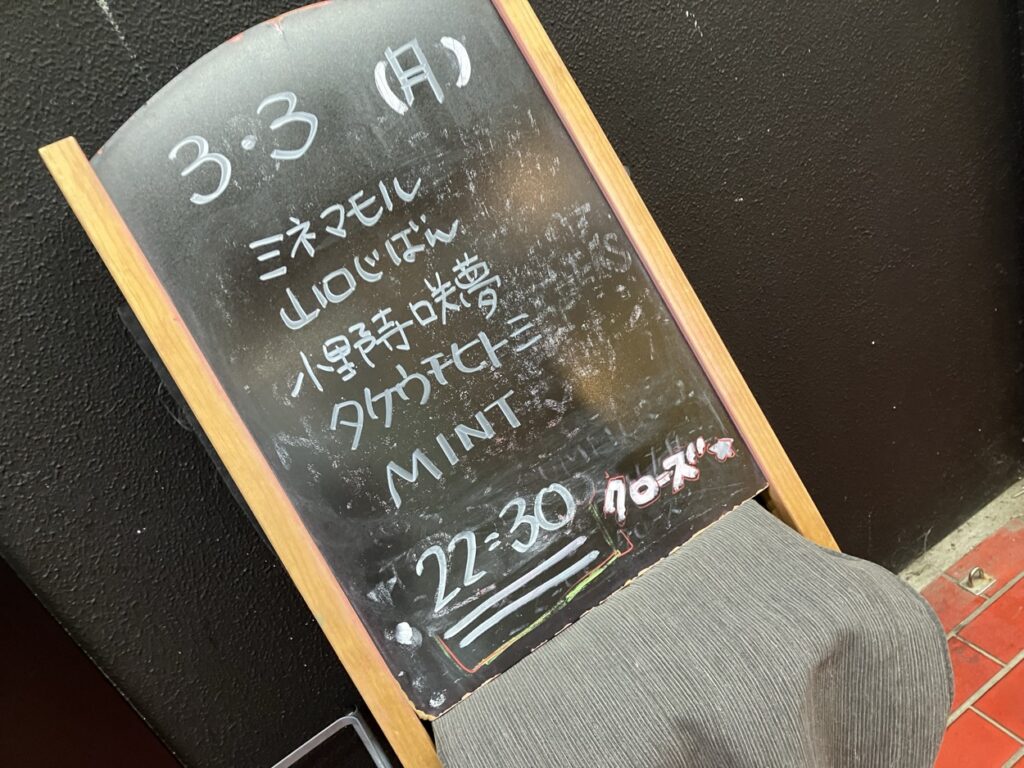 3・3 (月)
ミネマモル
山口じばん
小野寺咲夢
タケウチヒトミ
MINT
22:30 クローズ☆